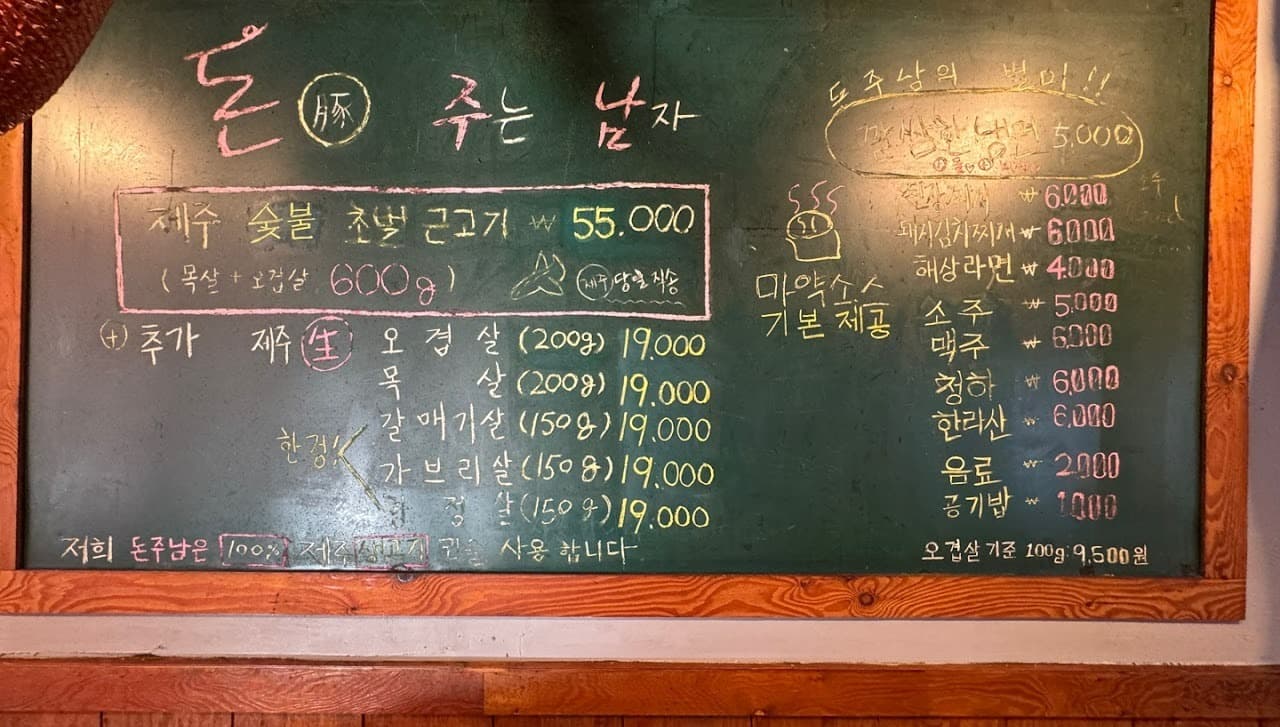 돈 豚 주는 남자
제주 숯불 초벌 근고기 ₩ 55.000
(목살 + 오겹살 600g)
제주 당일 직송
+ 추가 제주 生 오겹살 (200g) 19.000
목살 (200g) 19.000
갈매기살 (150g) 19.000
한정!!
가브리살 (150g) 19.000
항정살 (150g) 19.000
저희 돈주남은 100% 제주생고기 만을 사용합니다
돈주남의 별미!!
냉면 5,000
마약소스
기본 제공
된장찌개 ₩ 6.000
돼지김치찌개 ₩ 6.000
해상라면 ₩ 4.000
소주 ₩ 5.000
맥주 ₩ 6.000
청하 ₩ 6.000
한라산 ₩ 6.000
음료 ₩ 2.000
공기밥 ₩ 1.000
오겹살 기준 100g: 9,500원